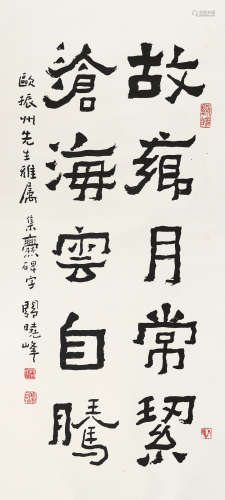 故鄉月常絜
滄海雲自騰
歐振州先生雅屬 集爨碑字 關曉峰